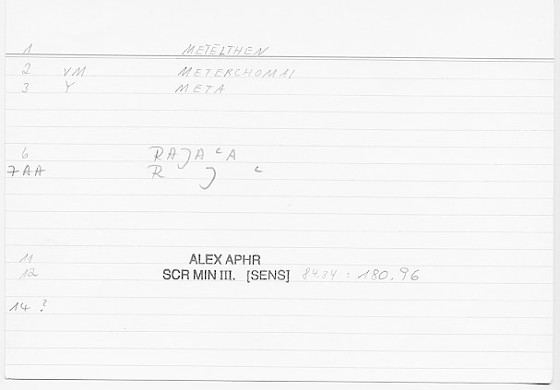 1 METELTHEN
2 VM METERCHOMAI
3 Y META
6 RAJACA
7AA R J C
11 ALEX APHR
12 SCR MIN III. [SENS] 84.34 : 180.96
14 ?